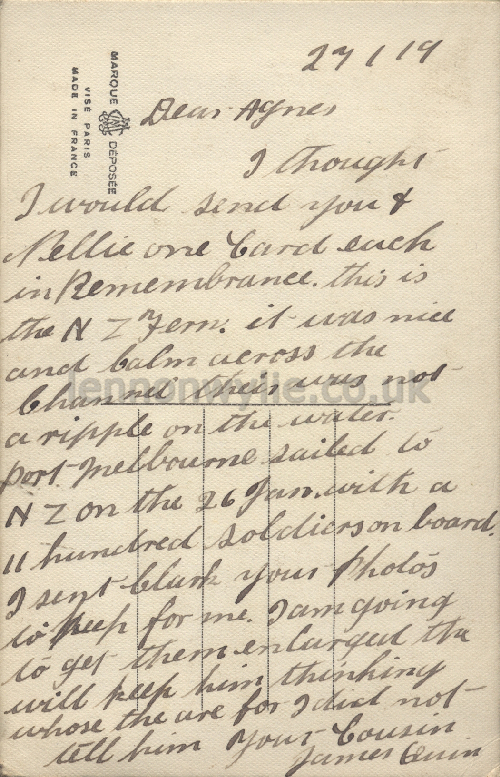 27/1/19
MARQUE DÉPOSÉE
VISÉ PARIS
MADE IN FRANCE
Dear Agnes
I thought
I would send you &
Nellie one Card each
in Remembrance. this is
the N Z Fern. it was nice
and Calm across the
Channel their was not
a ripple on the water.
Port Melbourne sailed to
N Z on the 26 Jan. with a
11 hundred soldiers on board.
I sent Clark your Photos
to keep for me. I am going
to get them enlarged the
will keep him thinking
whose the are for I did not
tell him Your Cousin
James Quin
lennonwylie.co.uk